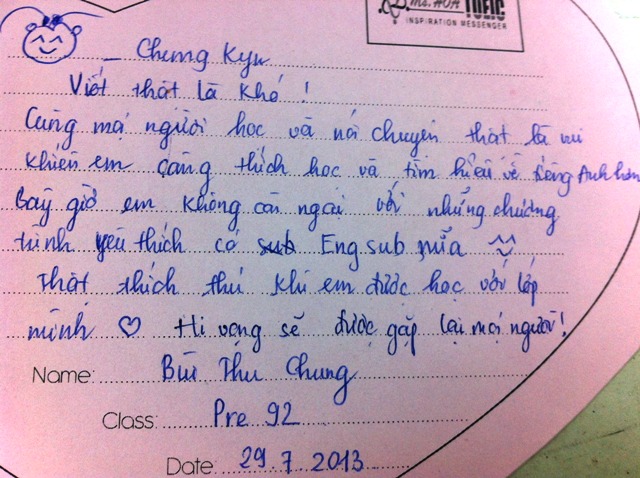 Ms. HOA TOEIC
INSPIRATION MESSENGER
- Chung Kyu
Viết thật là khó !
Cùng mọi người học và nói chuyện thật là vui
khiến em càng thích học và tìm hiểu về tiếng Anh hơn
Bây giờ em không còn ngại với những chương
trình yêu thích có sub Eng sub nữa ^^
Thật thích thú khi em được học với lớp
mình ♡ Hi vọng sẽ được gặp lại mọi người!
Name: Bùi Thu Chung
Class: Pre 92
Date: 29.7.2013